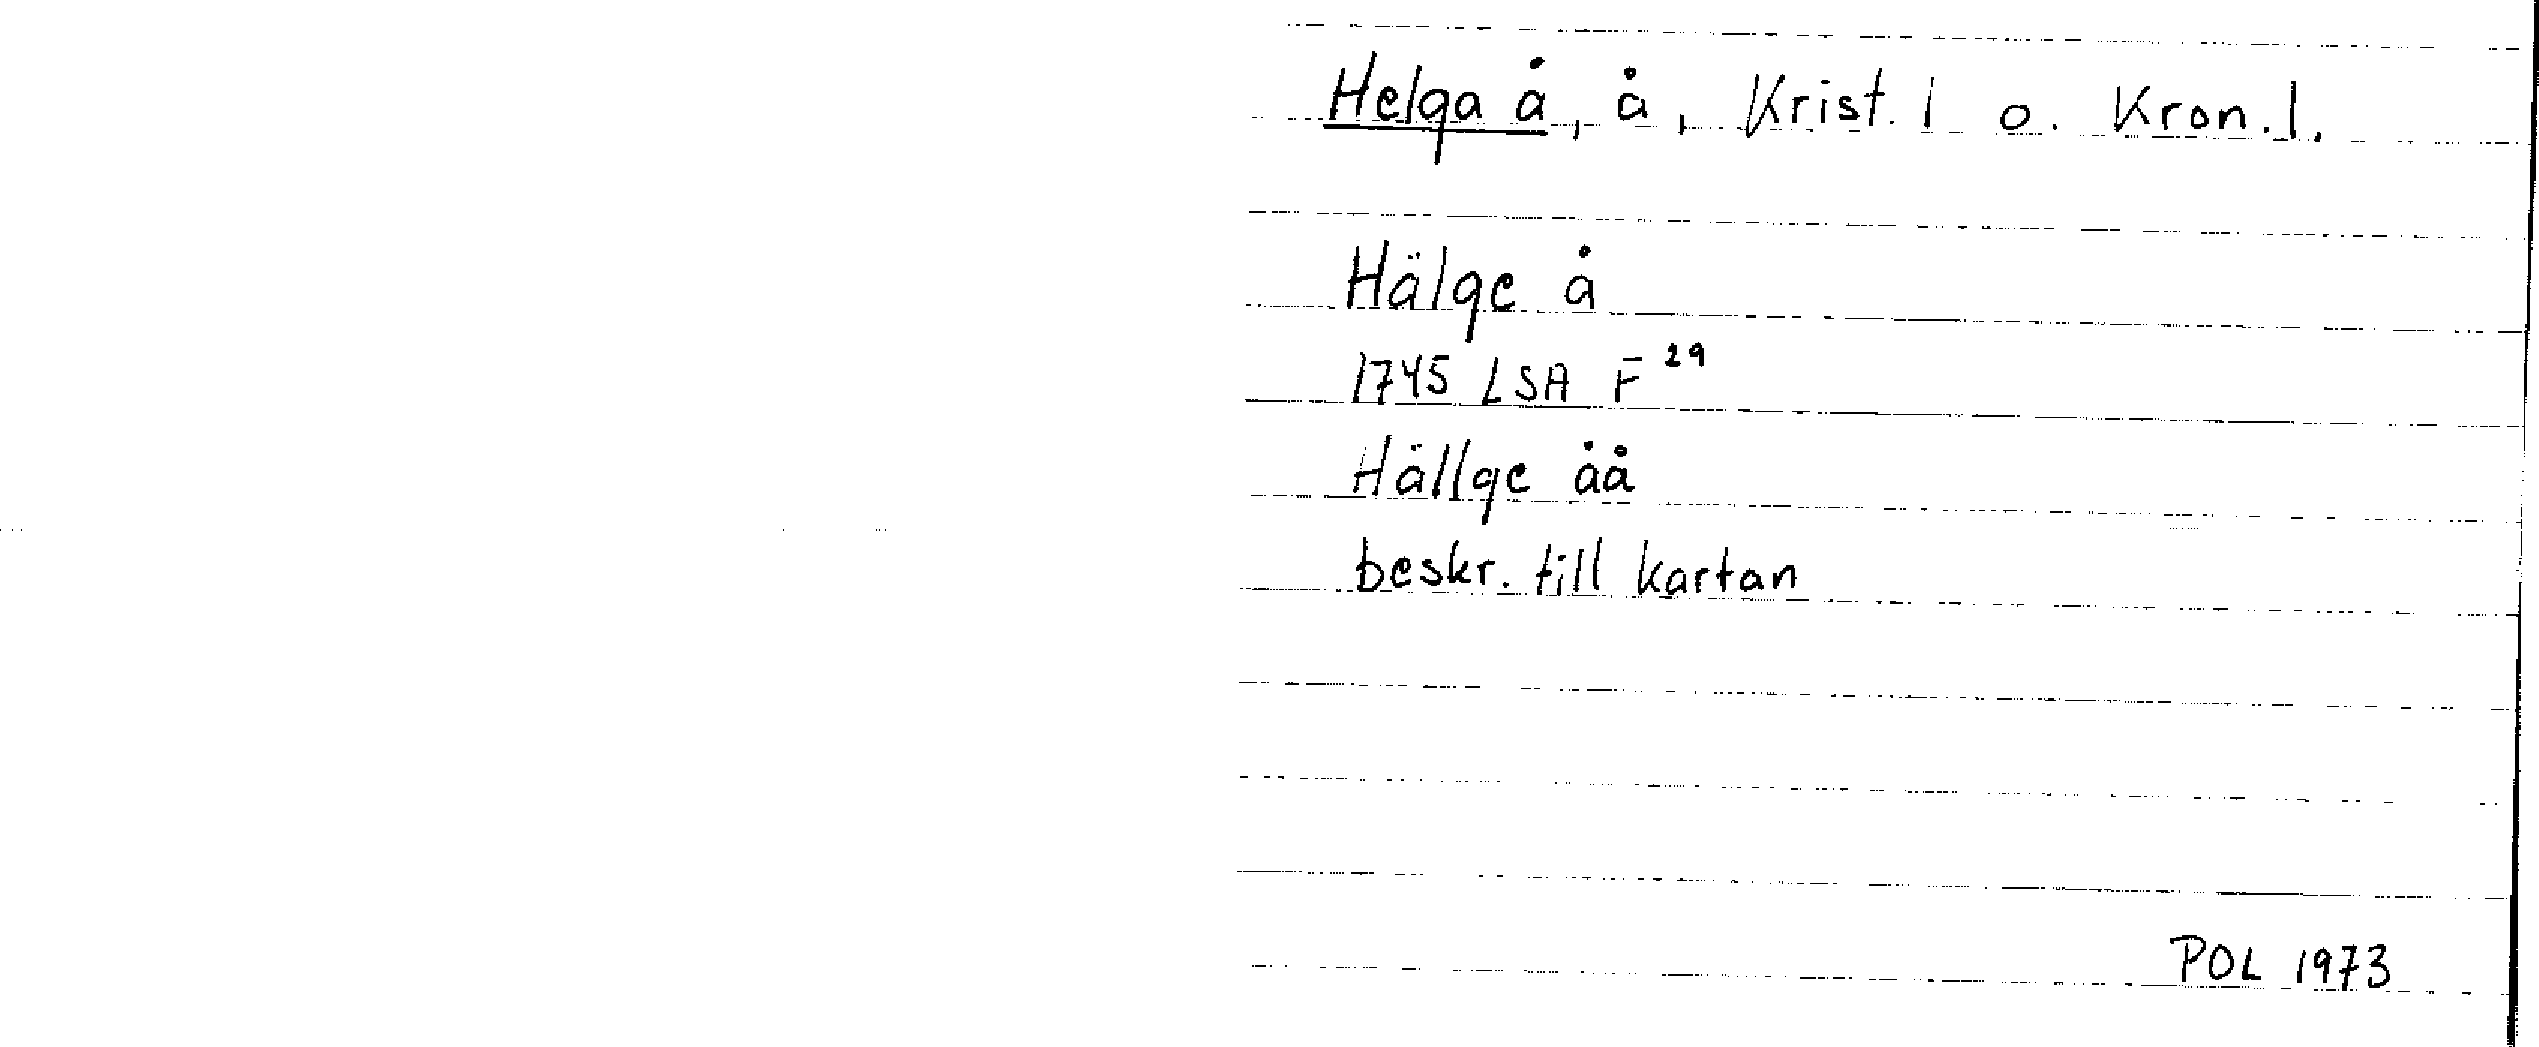 Helga å, å, Krist. l o. Kron. l.
Hälge å
1745 LSA F 29
Hällge åå
beskr. till kartan
POL 1973